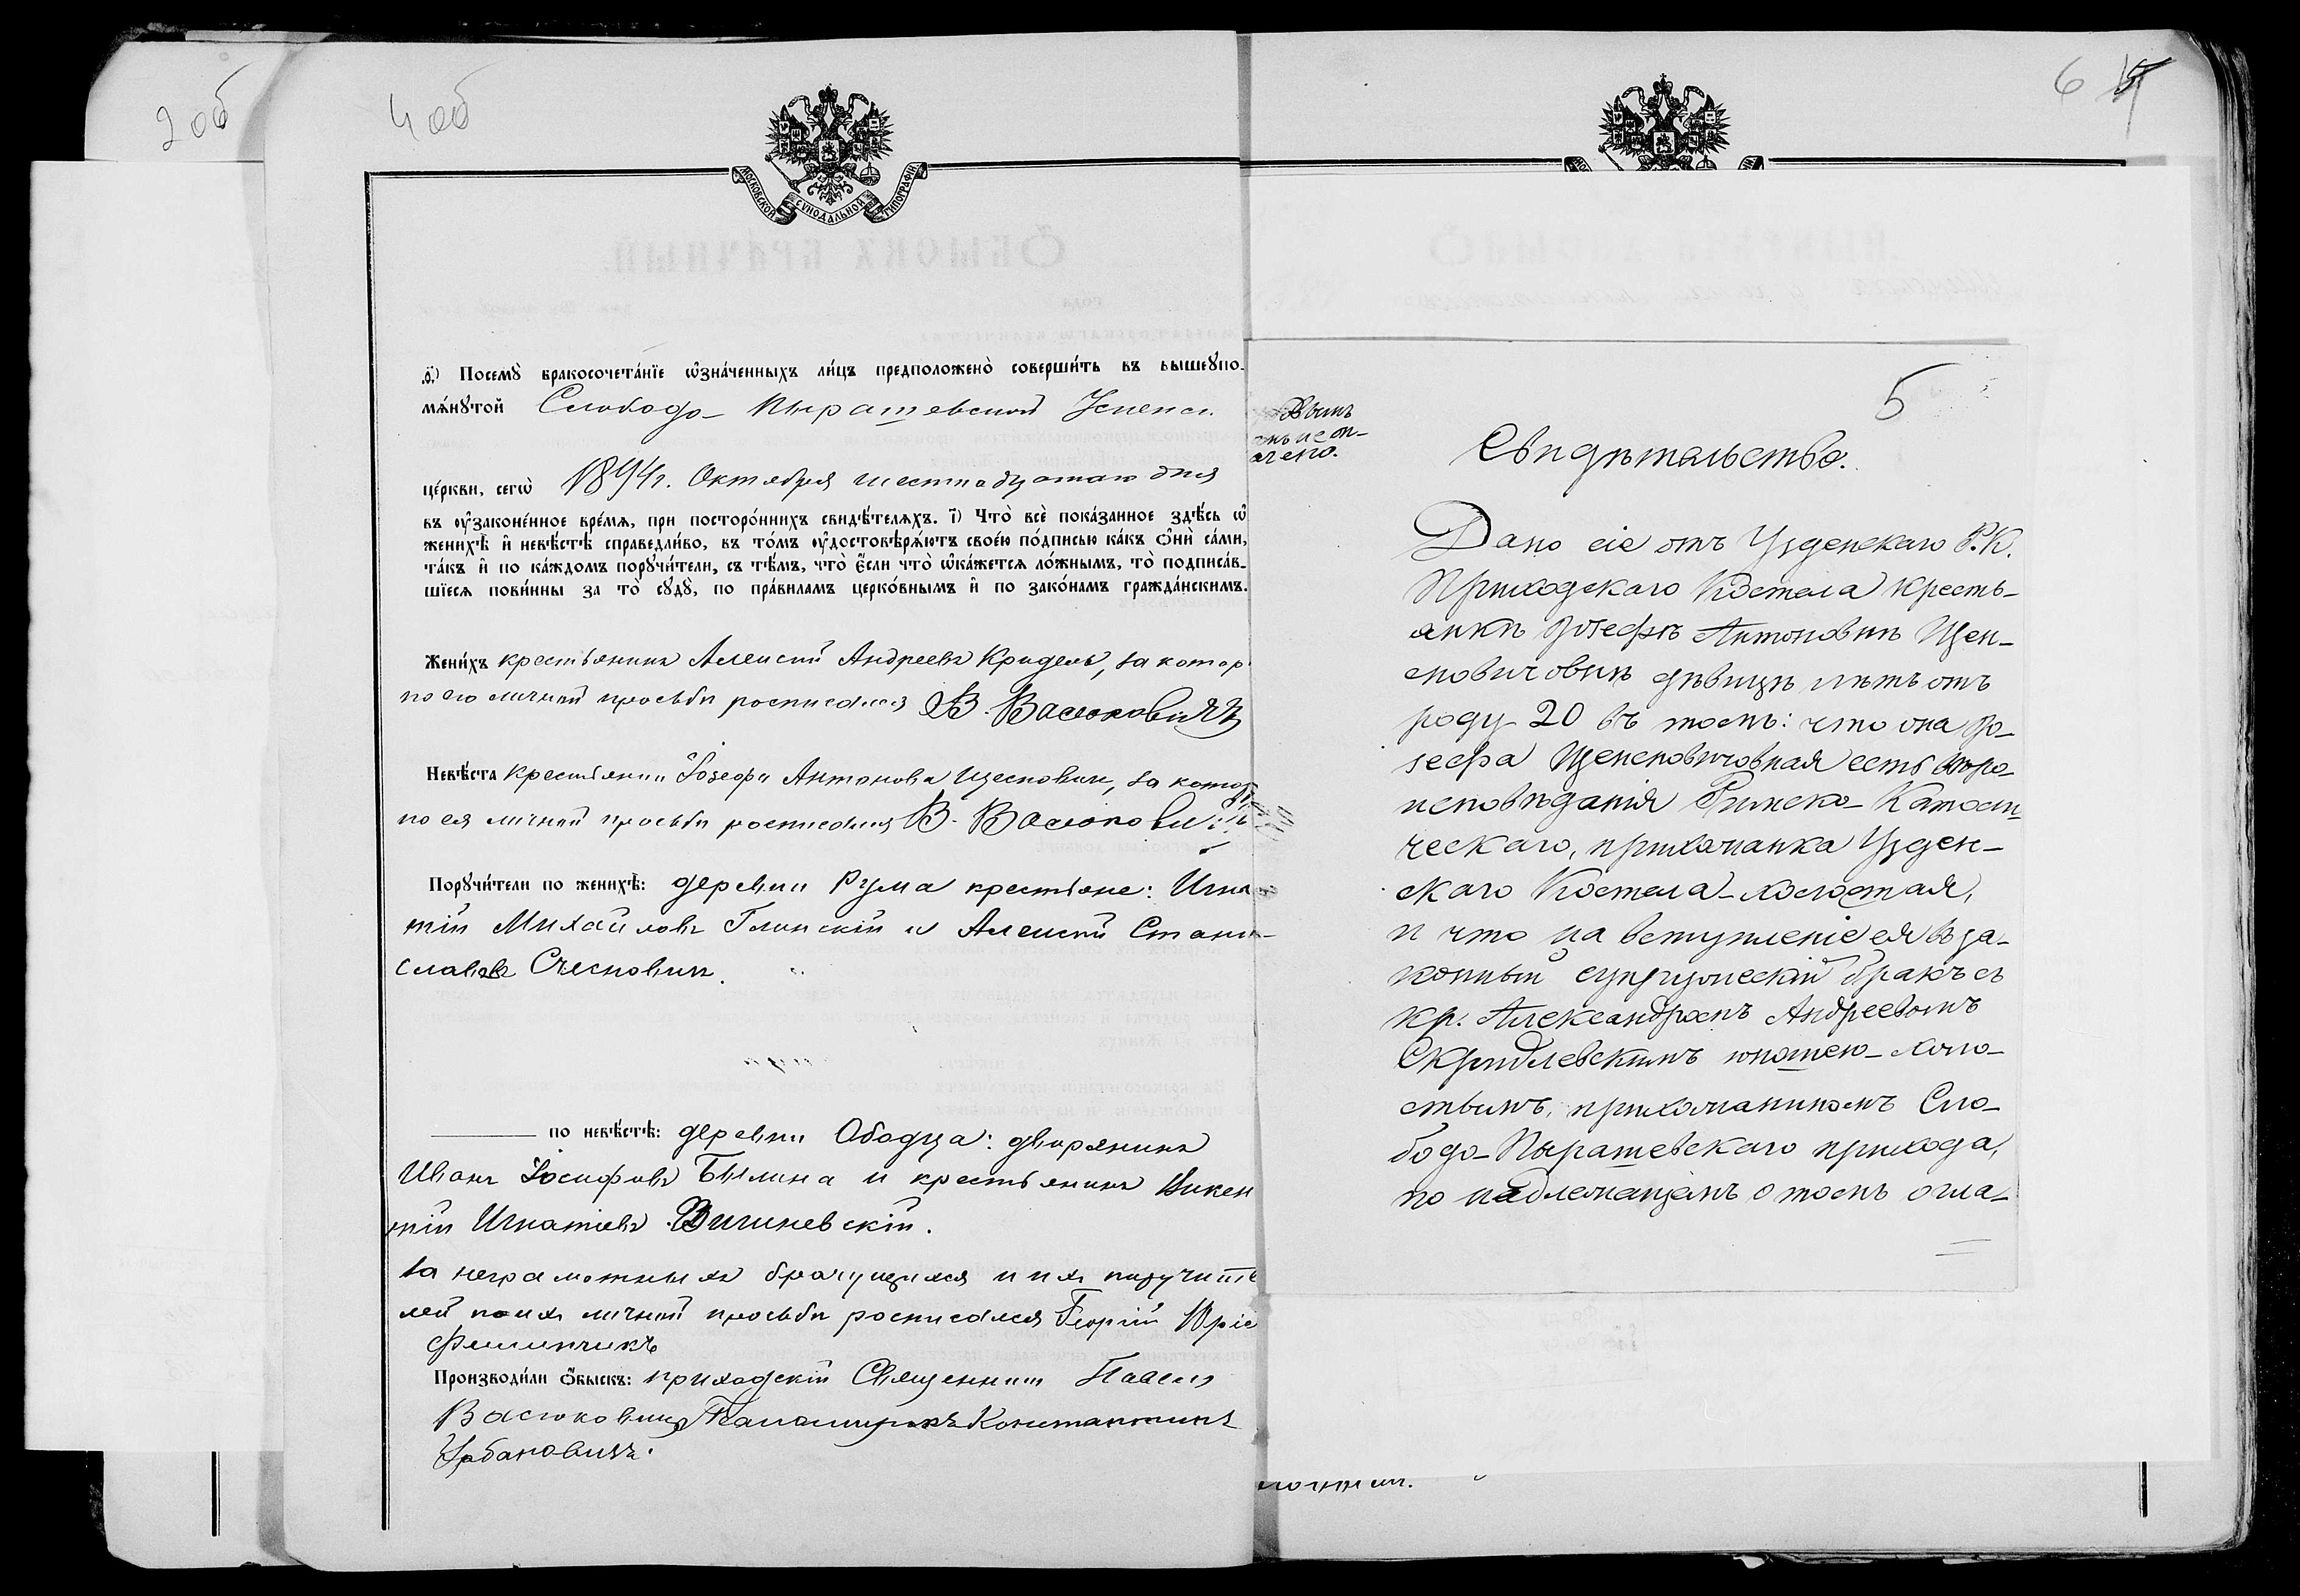 2 об
4 об
МОСКОВСКОЙ СѴНОДАЛЬНОЙ ТИПОГРАФІИ
ѳ҃) Посемꙋ̀ бракосочета́нїе ѡ҆зна́ченныхъ ли́цъ предположено̀ соверши́ть въ вышеꙋпо-
мѧ́нꙋтой Слободо-Пырашевской Успенс.
це́ркви, сегѡ̀ 1894 г. Октября шестнадцатаго дня
въ ᲂу҆законе́нное вре́мѧ, при посторо́ннихъ свидѣ́телѧхъ. і҃) Что̀ всѐ пока́занное здѣ́сь ѡ҆
женихѣ̀ и҆ невѣ́стѣ справедли́во, въ то́мъ ᲂу҆достовѣрѧ́ютъ свое́ю по́дписью ка́къ ѻ҆нѝ са́ми,
та́къ и҆ по ка́ждомъ порꙋчи́тели, съ тѣ́мъ, что̀ є҆́сли что̀ ѡ҆ка́жетсѧ ло́жнымъ, то̀ подписа́в-
шїесѧ пови́нны за то̀ сꙋдꙋ̀, по пра́виламъ церко́внымъ и҆ по зако́намъ гражда́нскимъ.
Жени́хъ крестьянинъ Алексій Андреевъ Кридель, за котор
по его личной просьбѣ росписался В. Васюковичъ
Невѣ́ста крестьянка Іозефа Антонова Щесновичъ, за котор
по ея личной просьбѣ росписался В. Васюковичъ
Порꙋчи́тели по женихѣ̀: деревни Рума крестьяне: Игна
тій Михайловъ Глинскій и Алексій Стани-
славовъ Счесновичъ.
по невѣ́стѣ: деревни Ободца: дворянинъ
Иванъ Іосифовъ Былина и крестьянинъ Викен
тій Игнатіевъ Вишневскій.
За неграмотныхъ брачущихся и ихъ поручите
лей по ихъ личной просьбѣ росписался Георгій Юріе
Филипчикъ
Производи́ли ѻ҆́быскъ: приходскій Священникъ Павелъ
Васюковичъ Псаломщикъ Константинъ
Урбановичъ.
6
5
Свидѣтельство.
Дано сіе отъ Узденскаго Р. К.
Приходскаго Костела кресть-
янкѣ Іозефѣ Антоновнѣ Щен-
сновичовнѣ дѣвицѣ лѣтъ отъ
роду 20 въ томъ: что она Іо-
зефа Щенсновичовная есть вѣро-
исповѣданія Римско-Католи-
ческаго, прихожанка Узден-
скаго Костела-холостая,
и что на вступленіе ея въ за-
конный супружескій бракъ съ
кр. Александромъ Андреевымъ
Скридлевскимъ юношею-холо-
стымъ, прихожаниномъ Сло-
бодо-Пырашевскаго прихода,
по надлежащемъ о томъ огла-